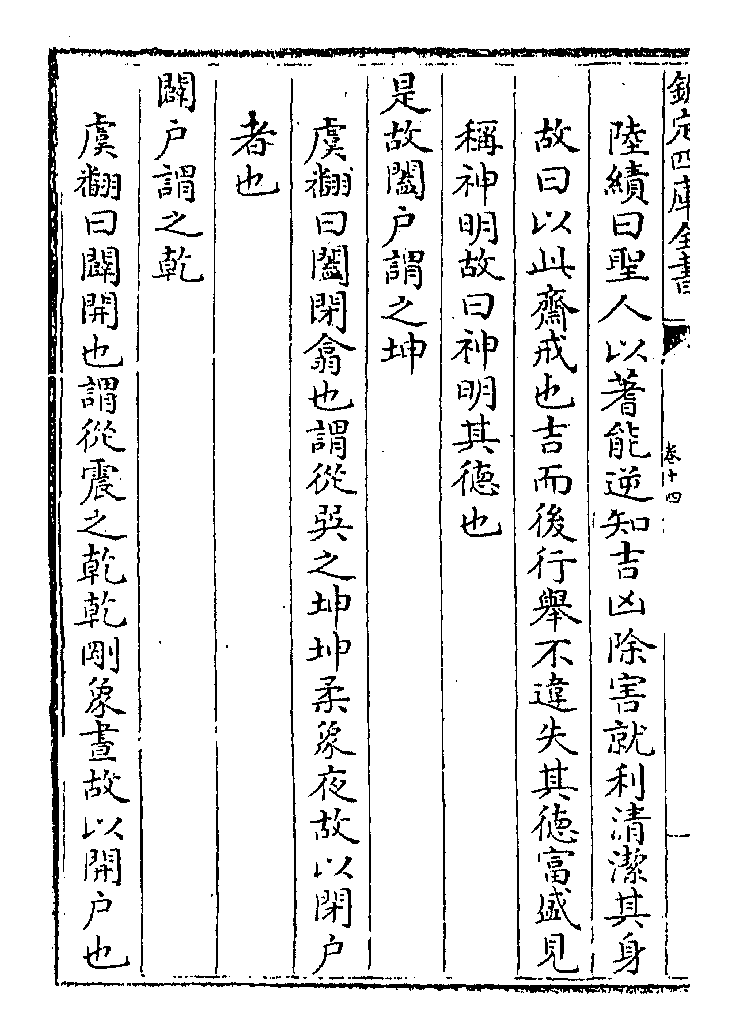 欽定四庫全書
卷十四
陸績曰聖人以蓍能逆知吉凶除害就利清潔其身
故曰以此齋戒也吉而後行舉不違失其徳富盛見
稱神明故曰神明其徳也
是故闔户謂之坤
虞翻曰闔閉翕也謂從巽之坤坤柔象夜故以閉户
者也
闢户謂之乾
虞翻曰闢開也謂從震之乾乾剛象晝故以開户也